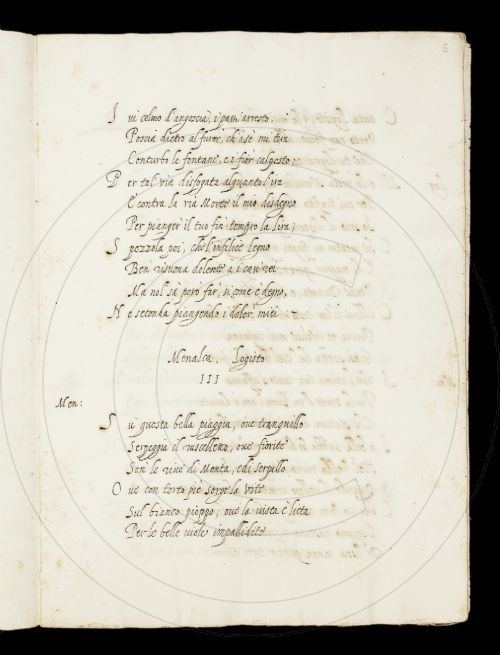 5
I vi colmo d'angoscia, i passi arresto.
Poscia dietro al furor, ch'a sè mi tira
Conturbo le fontane, e i fior calpesto.
P er tal via disfogata alquanto l'ira
E contra la ria Morte il mio disdegno
Per pianger il tuo fin tempro la lira;
S pezzola poi, che l'infelice legno
Ben risuona dolente a i casi rei
Ma nol sà però far, si come è degno,
N e seconda piangendo i dolor miei
Menalca. Logisto
III
Men:
S u questa bella piaggia, ove tranquillo
Serpeggia il ruscelletto, ove fiorite
Son le rive di Menta, e di Serpillo
O ve con torto piè sorge la Vite
Sul bianco pioppo; ove la vista è lieta
Per le belle viole impallidite